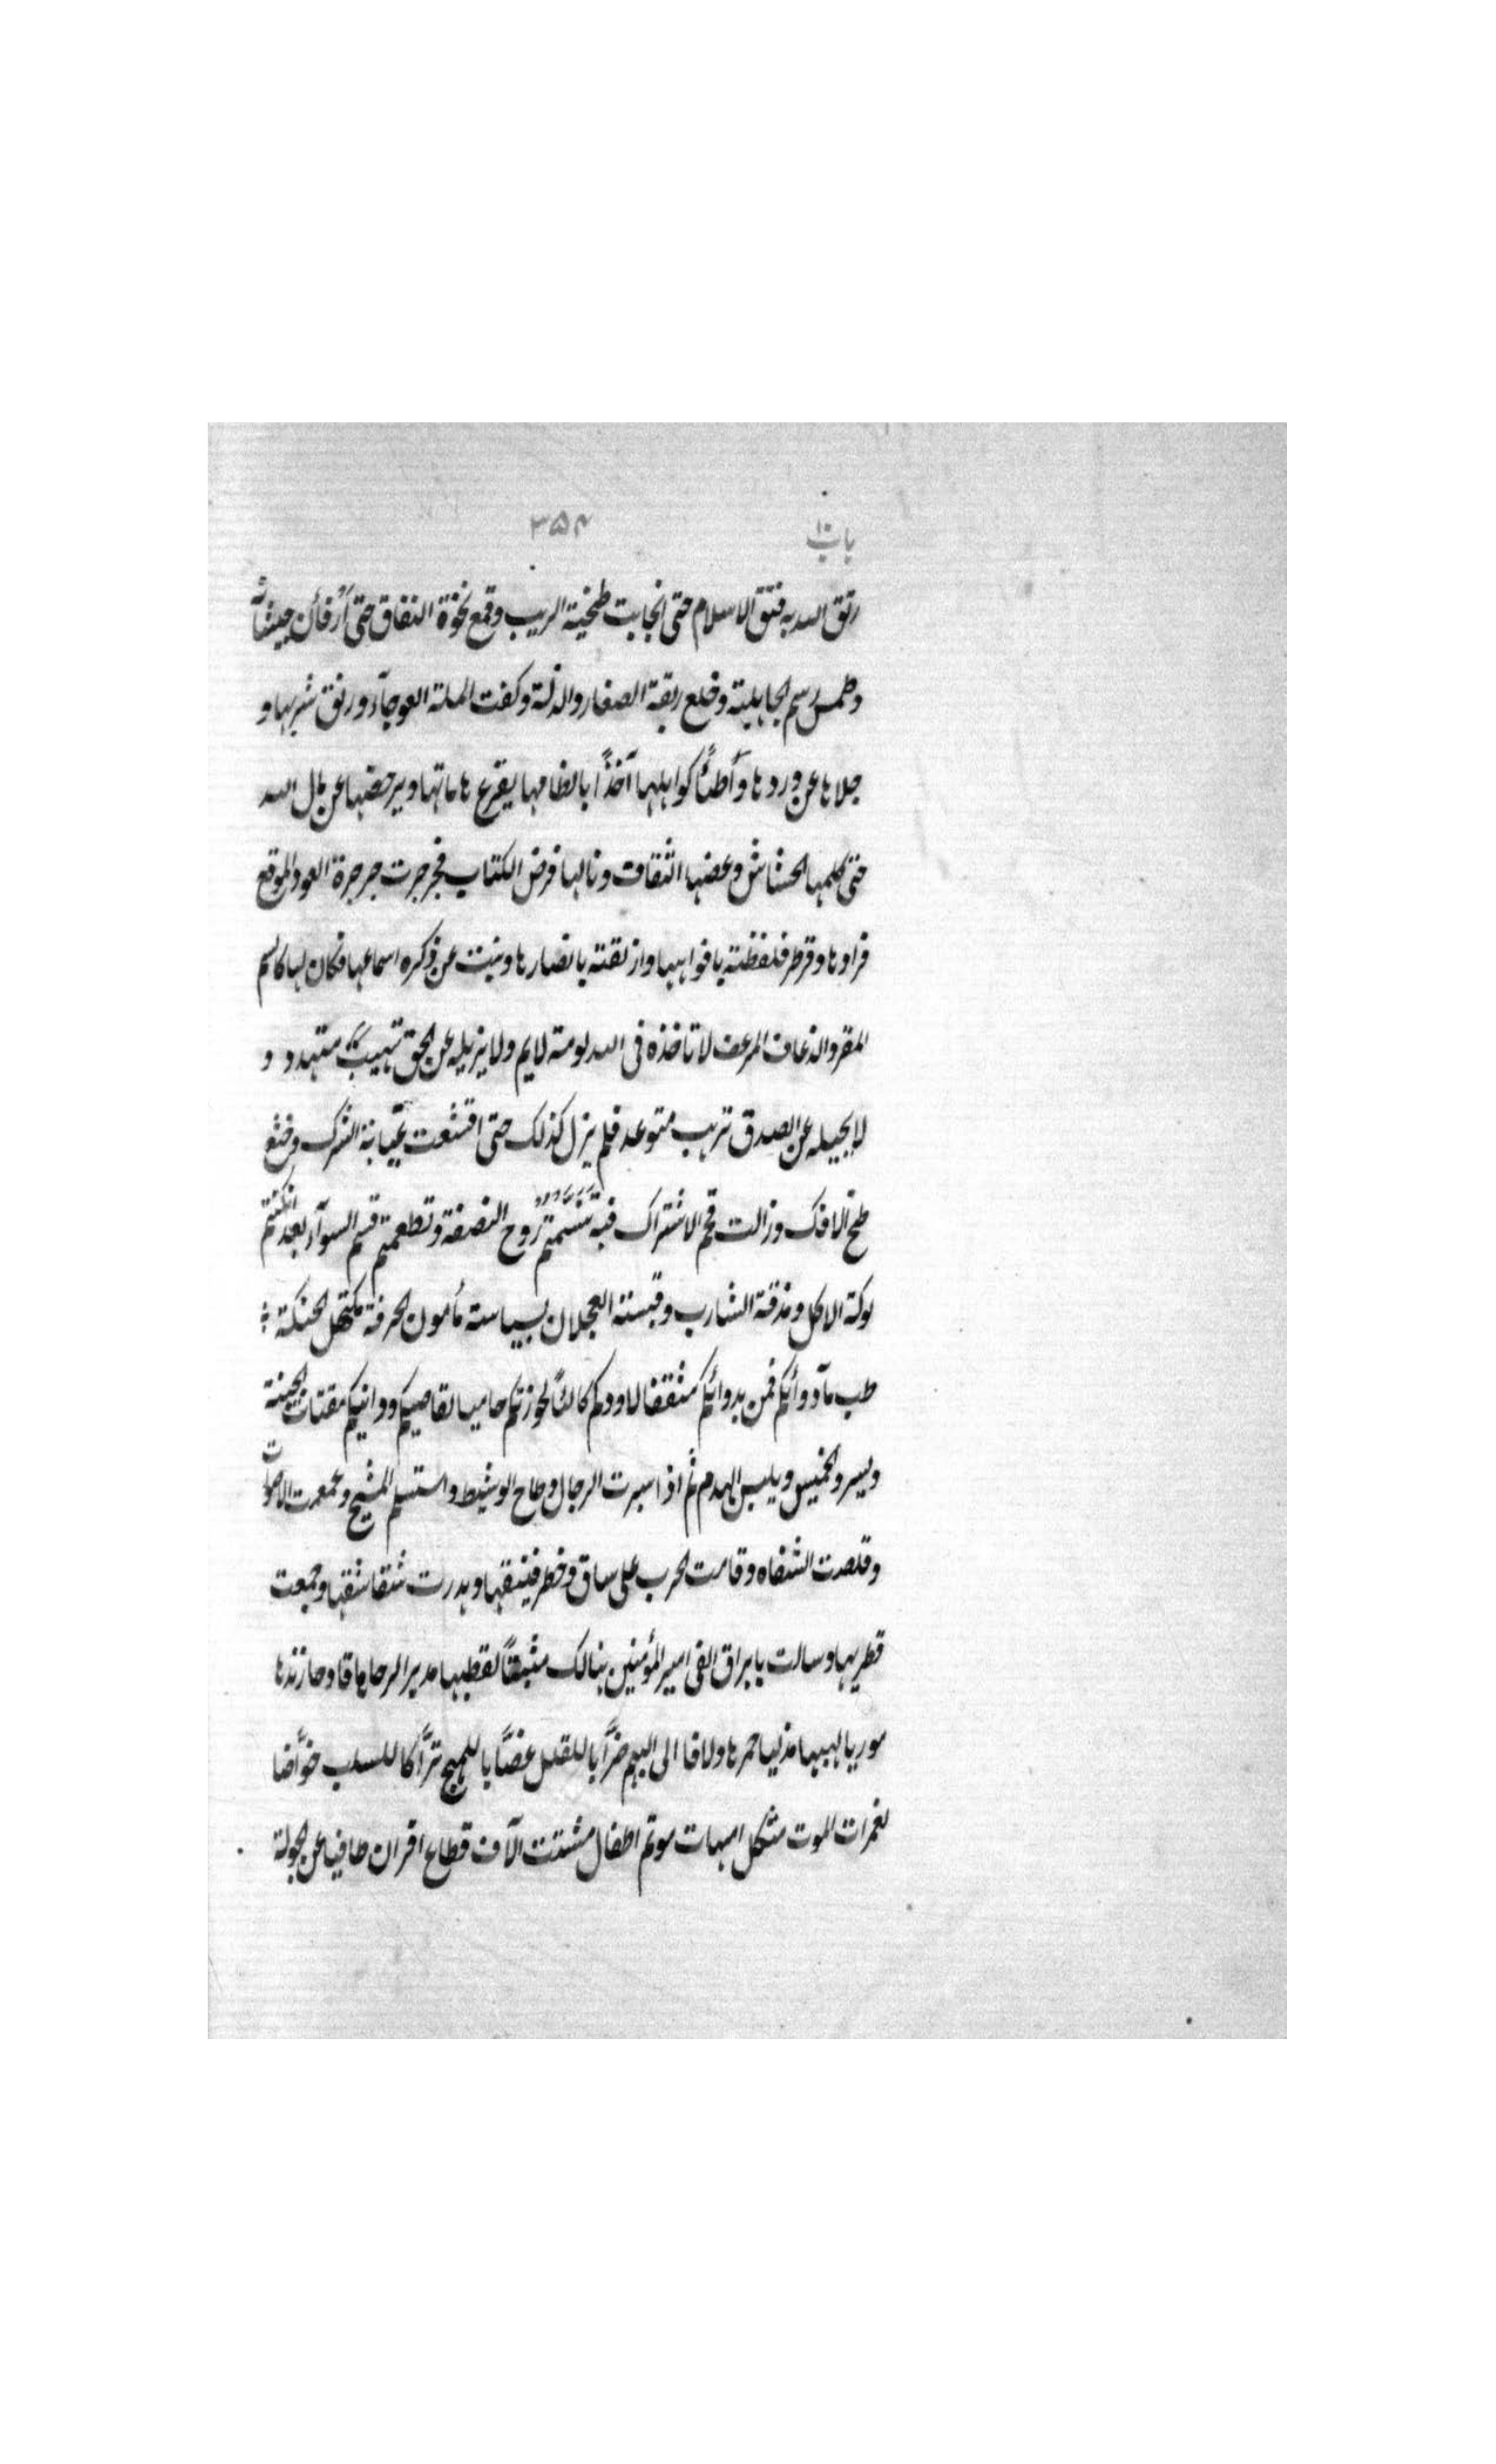 باب ١٠ ٣٥٤
رتق الله به فتق الاسلام حتى انجابت طخية الريب وقمع نخوة النفاق حتى ارفأن جيشانه
وطمس رسم الجاهلية وخلع ربقة الصغار والذلة وكفت الملة العوجآء ورنق شربها و
جلاها عن وردها وأطئًا كواهلها آخذًا باكظامها يقرع هاماتها ويرحضها عن مال الله
حتى كلمها الخشاش وعضها الثقاف ونالها فرض الكتاب فجرجرت جرجرة العود الموقع
فرادها وقرطر فلفظته بافواهها وازلقته بابصارها ونبت عن ذكره اسماعها فكان لها كالسم
الممقر والذعاف المزعف لا تاخذه فى الله لومة لايم ولا يزيله عن الحق تهيب متهدد و
لا يحيله عن الصدق ترهب متوعد فلم يزل كذلك حتى اقشعت غيابة الشرك وخنع
طخ الافك وزالت قحم الاشتراك فبه تنسمتم رَوح النصفة وتطعمتم قسم السوآء بعد ان كنتم
لوكة الاكل ومذقة الشارب وقبسة العجلان بسياسة مأمون الحرفة مكتهل الحنكة
طب بآدوائكم قمن بدوائكم مثقفا لاودكم كالئًا لحوزتكم حاميا لقاصيكم ودانيكم يقتات الجبنة
ويسر والخميس ويلبس الهدم ثم اذا سبرت الرجال وطاح الوشيظ واستسلم المشيح وغمغمت الاصوات
وقلصت الشفاه وقامت الحرب على ساق وخطر فنيقها وهدرت شقاشقها وجمعت
قطريها وسالت بابراق الفى امير المؤمنين هنالك مثبتًا لقطبها مديرا لرحاها قادحا زندها
موريا لهبها مذكيا جمرها دلافا الى البهم ضرَّابا للقلل غصَّابا للمهج ترَّاكا للسلب خوَّاضا
لغمرات الموت مثكل امهات موتم اطفال مشتت آلاف قطاع اقران طافيا عن الجولة